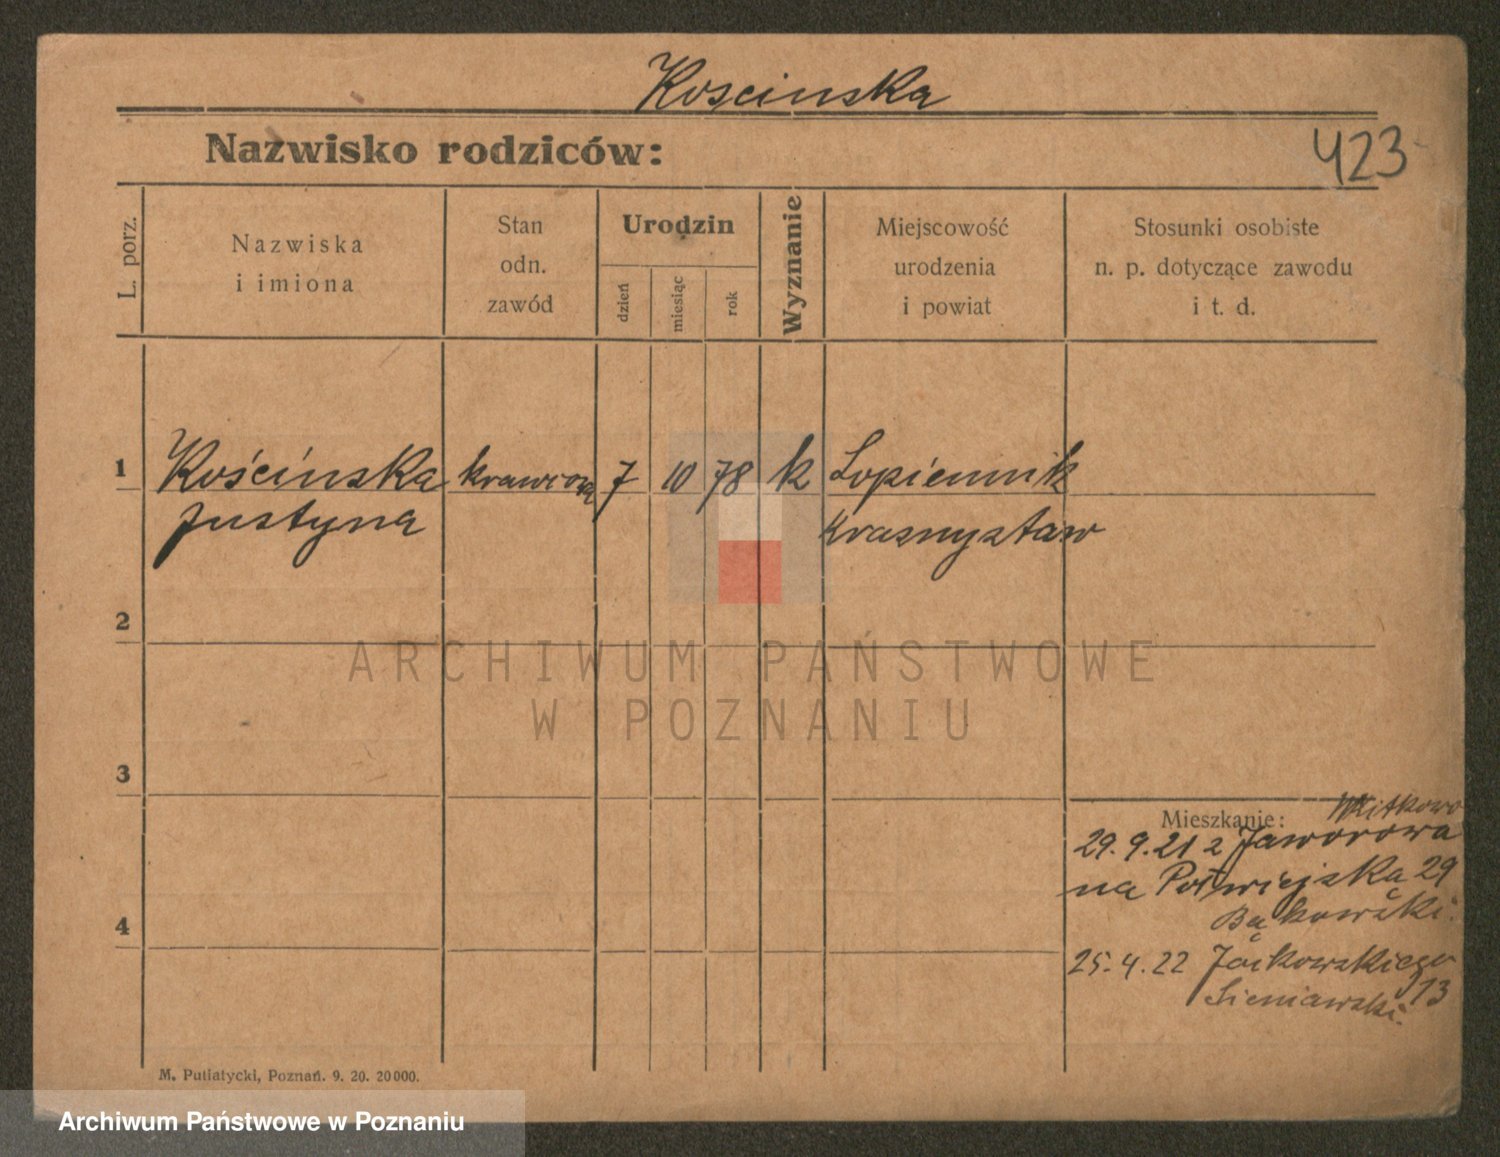 Koscinska
Nazwisko rodziców:
423
L. porz.
Nazwiska
i imiona
Stan
odn.
zawód
Urodzin
dzień
miesiąc
rok
Wyznanie
Miejscowość
urodzenia
i powiat
Stosunki osobiste
n. p. dotyczące zawodu
i t. d.
1
Kościńska krawcowa 7 10 78 k Łopiennik
Justyna Krasnystaw
2
ARCHIWUM PAŃSTWOWE
W POZNANIU
3
Witkowo
Mieszkanie:
29.9.21 z Jaworowa
na Półwiejska 29
Bąkowski.
4
25.4.22 Jackowskiego
13
Sieniawski.
M. Putiatycki, Poznań. 9. 20. 20000.
Archiwum Państwowe w Poznaniu